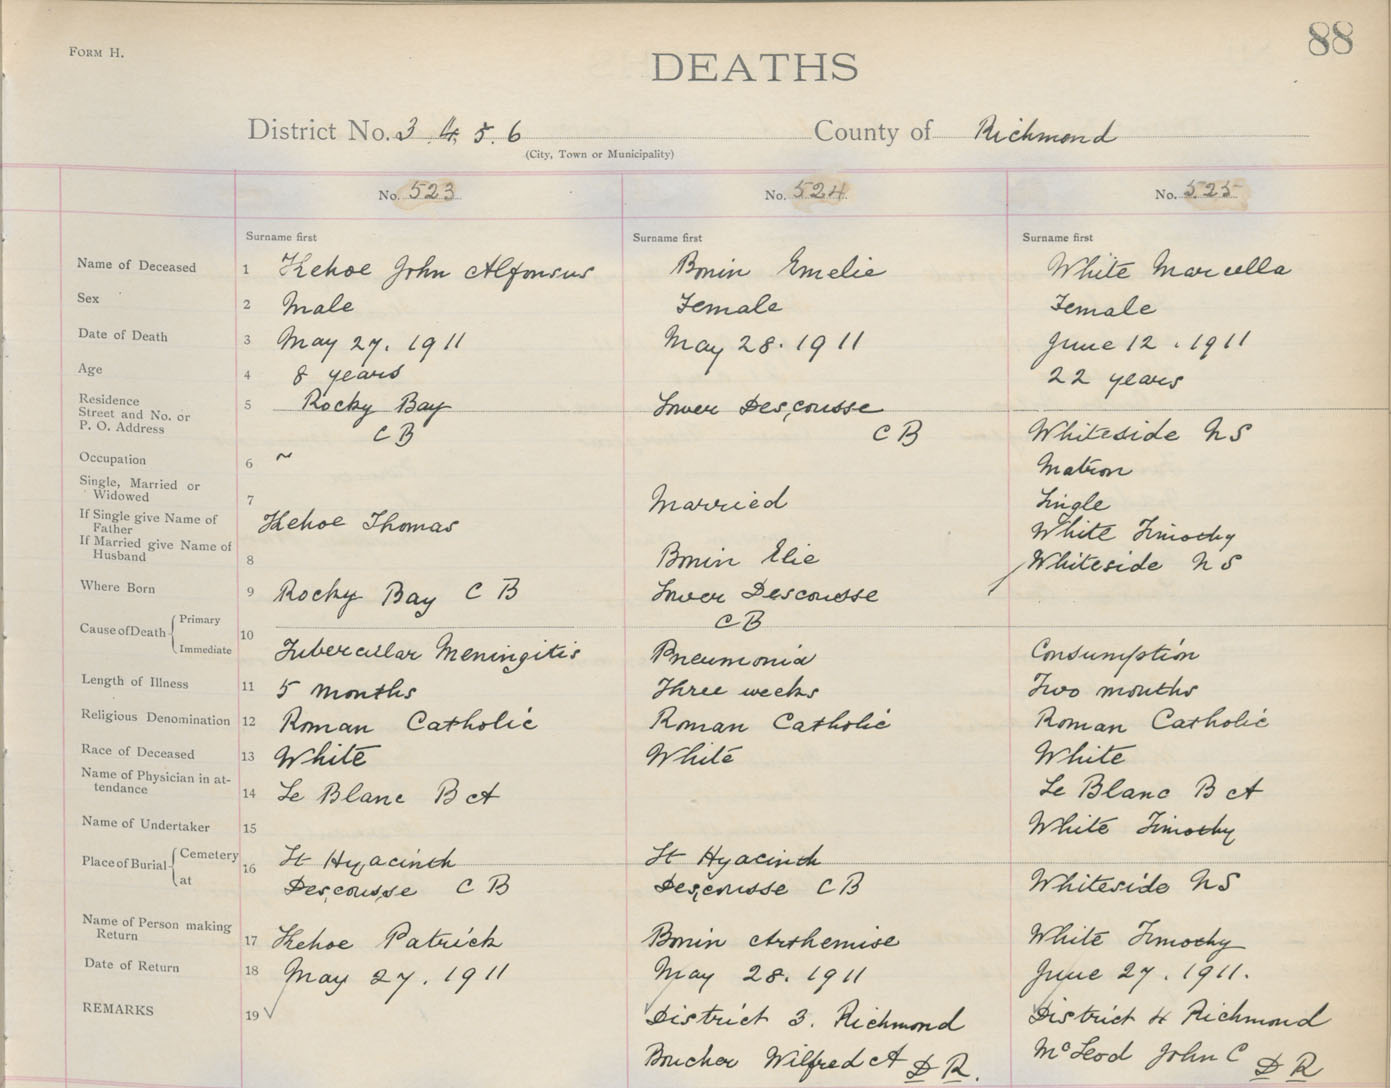 88
FORM H.
DEATHS
District No. 3. 4. 5. 6 County of Richmond
(City, Town or Municipality)
No. 523 No. 524 No. 525
Surname first Surname first Surname first
Name of Deceased 1 Kehoe John Alfonsus Bonin Emelie White Marcella
Sex 2 Male Female Female
Date of Death 3 May 27. 1911 May 28. 1911 June 12. 1911
Age 4 8 years 22 years
Residence 5 Rocky Bay Lower Descousse
Street and No. or
P. O. Address C B C B Whiteside N S
Occupation 6 ~ Matron
Single, Married or
Widowed 7 Married Single
If Single give Name of
Father Kehoe Thomas White Timothy
If Married give Name of
Husband 8 Bonin Elie Whiteside N S
Where Born 9 Rocky Bay C B Lower Descousse
C B
Cause of Death Primary
Immediate 10 Tubercular Meningitis Pneumonia Consumption
Length of Illness 11 5 months Three weeks Two months
Religious Denomination 12 Roman Catholic Roman Catholic Roman Catholic
Race of Deceased 13 White White White
Name of Physician in at-
tendance 14 Le Blanc B A Le Blanc B A
Name of Undertaker 15 White Timothy
Place of Burial Cemetery 16 St Hyacinth St Hyacinth
at Descousse C B Descousse C B Whiteside N S
Name of Person making
Return 17 Kehoe Patrick Bonin Arthemise White Timothy
Date of Return 18 May 27. 1911 May 28. 1911 June 27. 1911.
REMARKS 19 District 3. Richmond District 4 Richmond
Boucher Wilfred A D R. McLeod John C D R